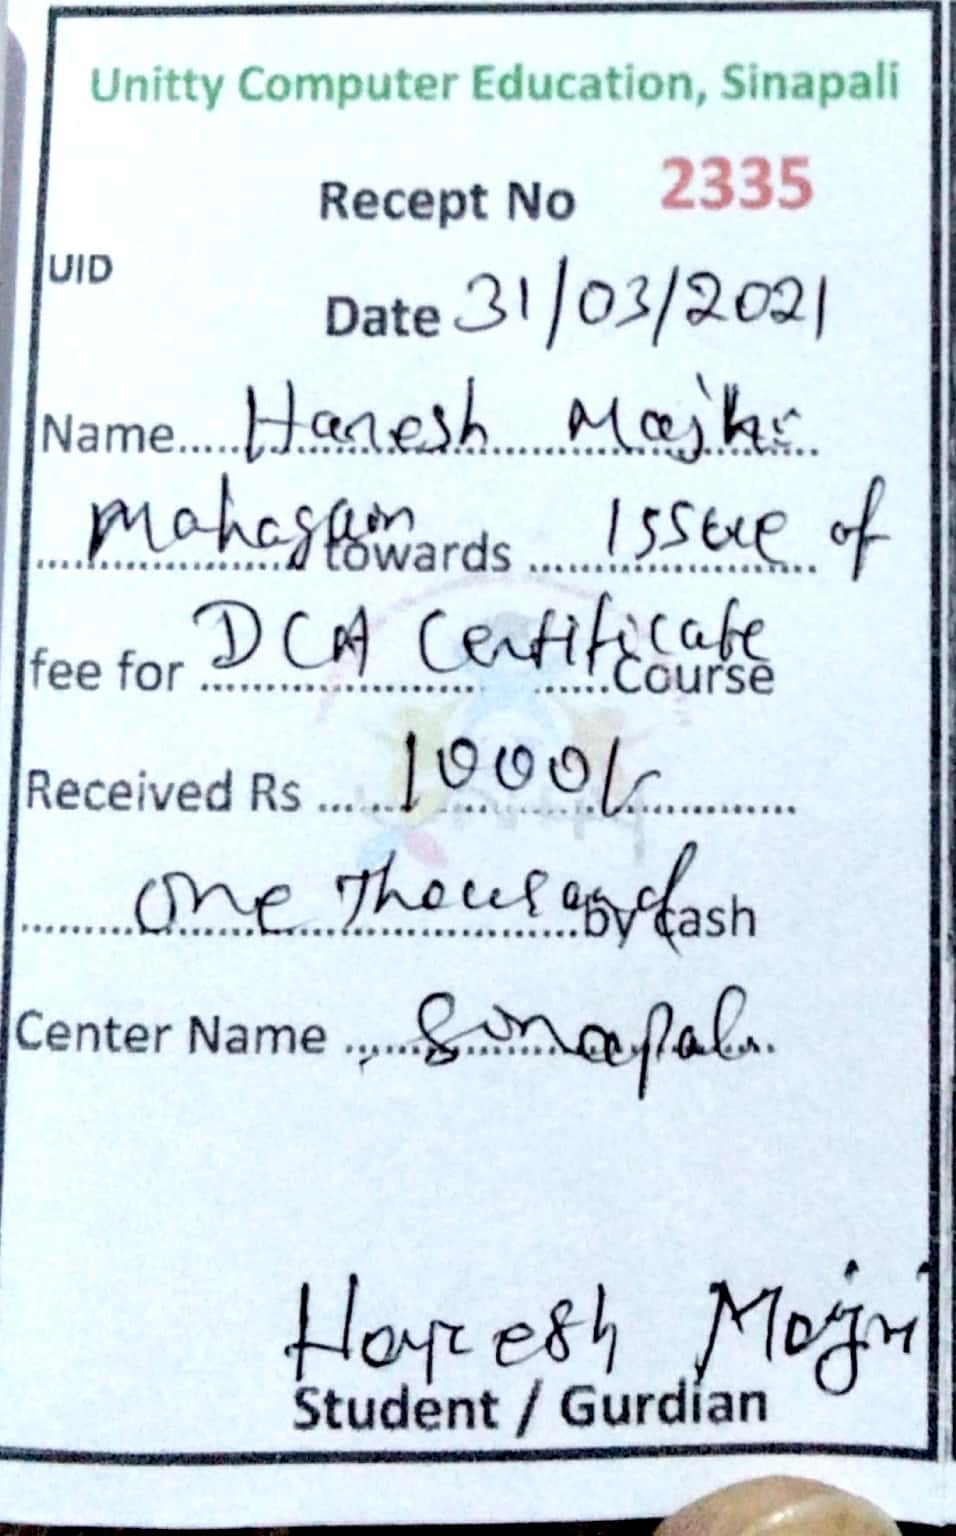 Unitty Computer Education, Sinapali
Recept No 2335
UID
Date 31/03/2021
Name..... Haresh Majhi
Mahagaon towards ... Issue of
fee for DCA Certificate Course
Received Rs ...... 1000/-
one Thousand by Cash
Center Name .... Sinapali
Haresh Majhi
Student / Gurdian